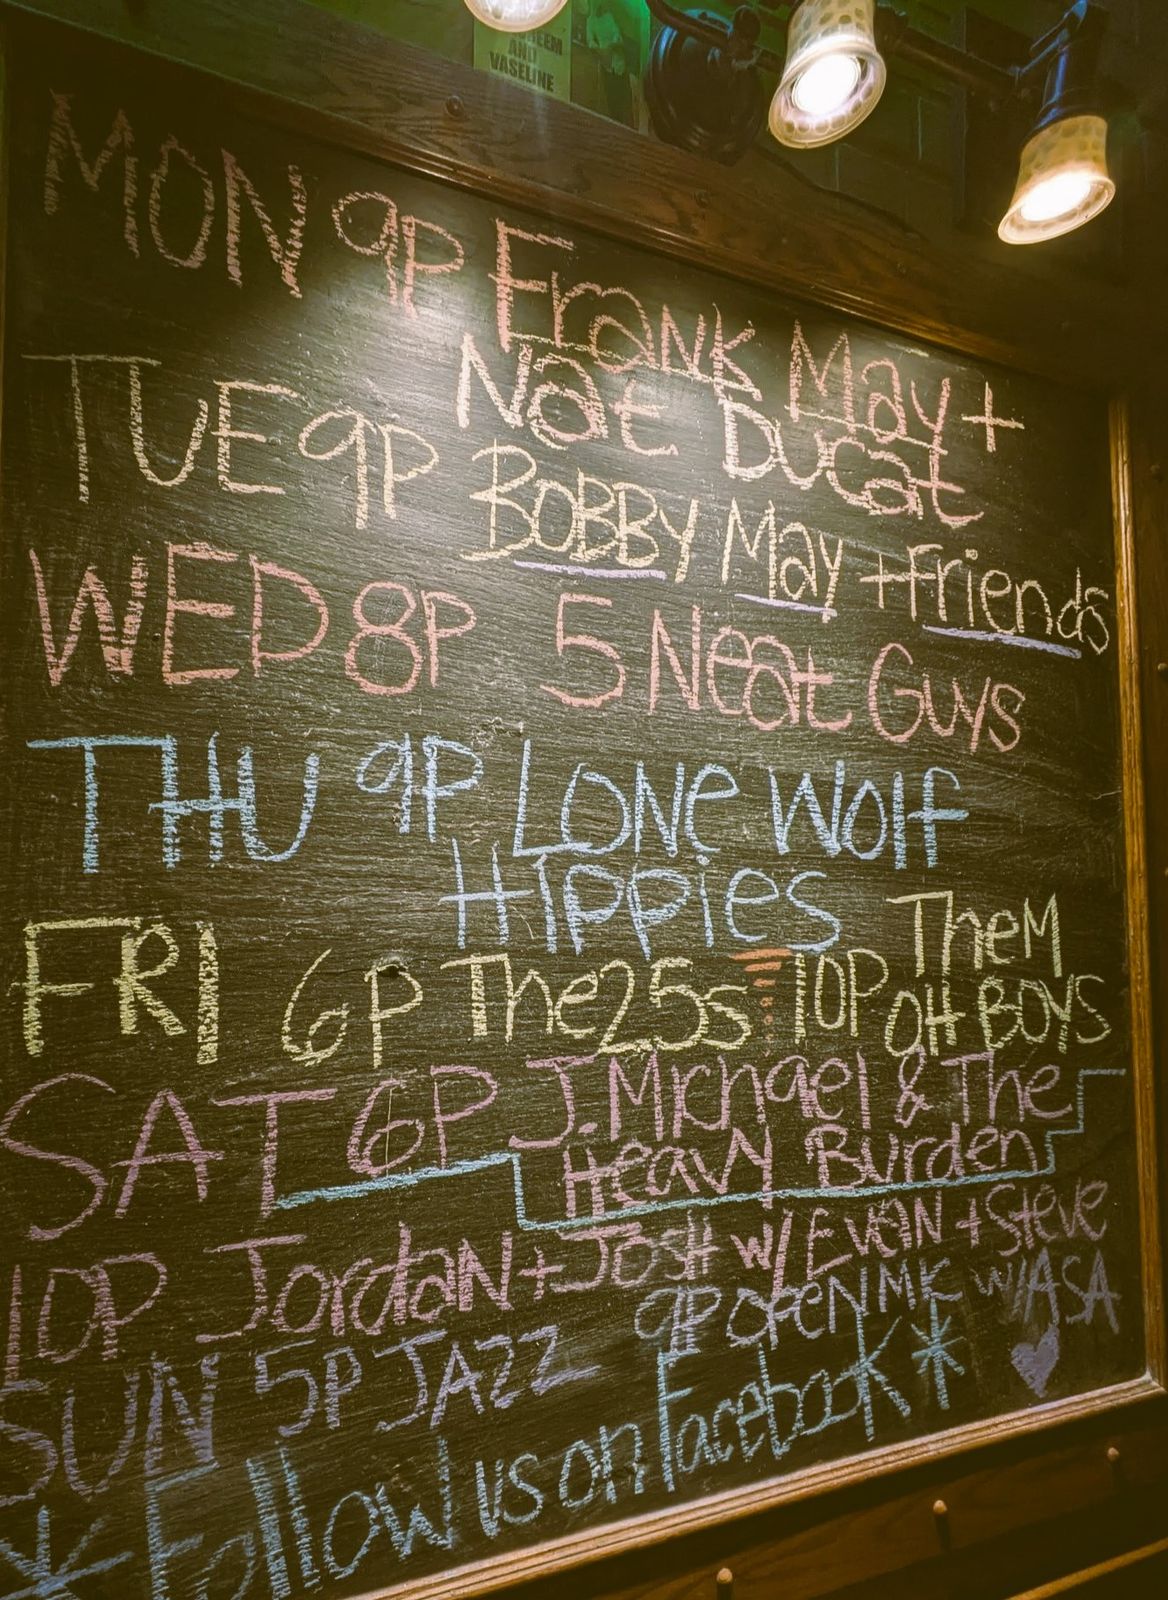 AND
VASELINE
MON 9P Frank May +
Nat Ducat
TUE 9P BOBBY May + Friends
WED 8P 5 Neat Guys
THU 9P LONe Wolf
HIPPIES
FRI 6P The 25s 10P TheM
OH BOYS
SAT 6P J. Michael & The
Heavy Burden
10P Jordan + Josh w/ Evan + Steve
SUN 5P JAZZ 9P OPEN MIC w/ ASA
* Follow us on Facebook *